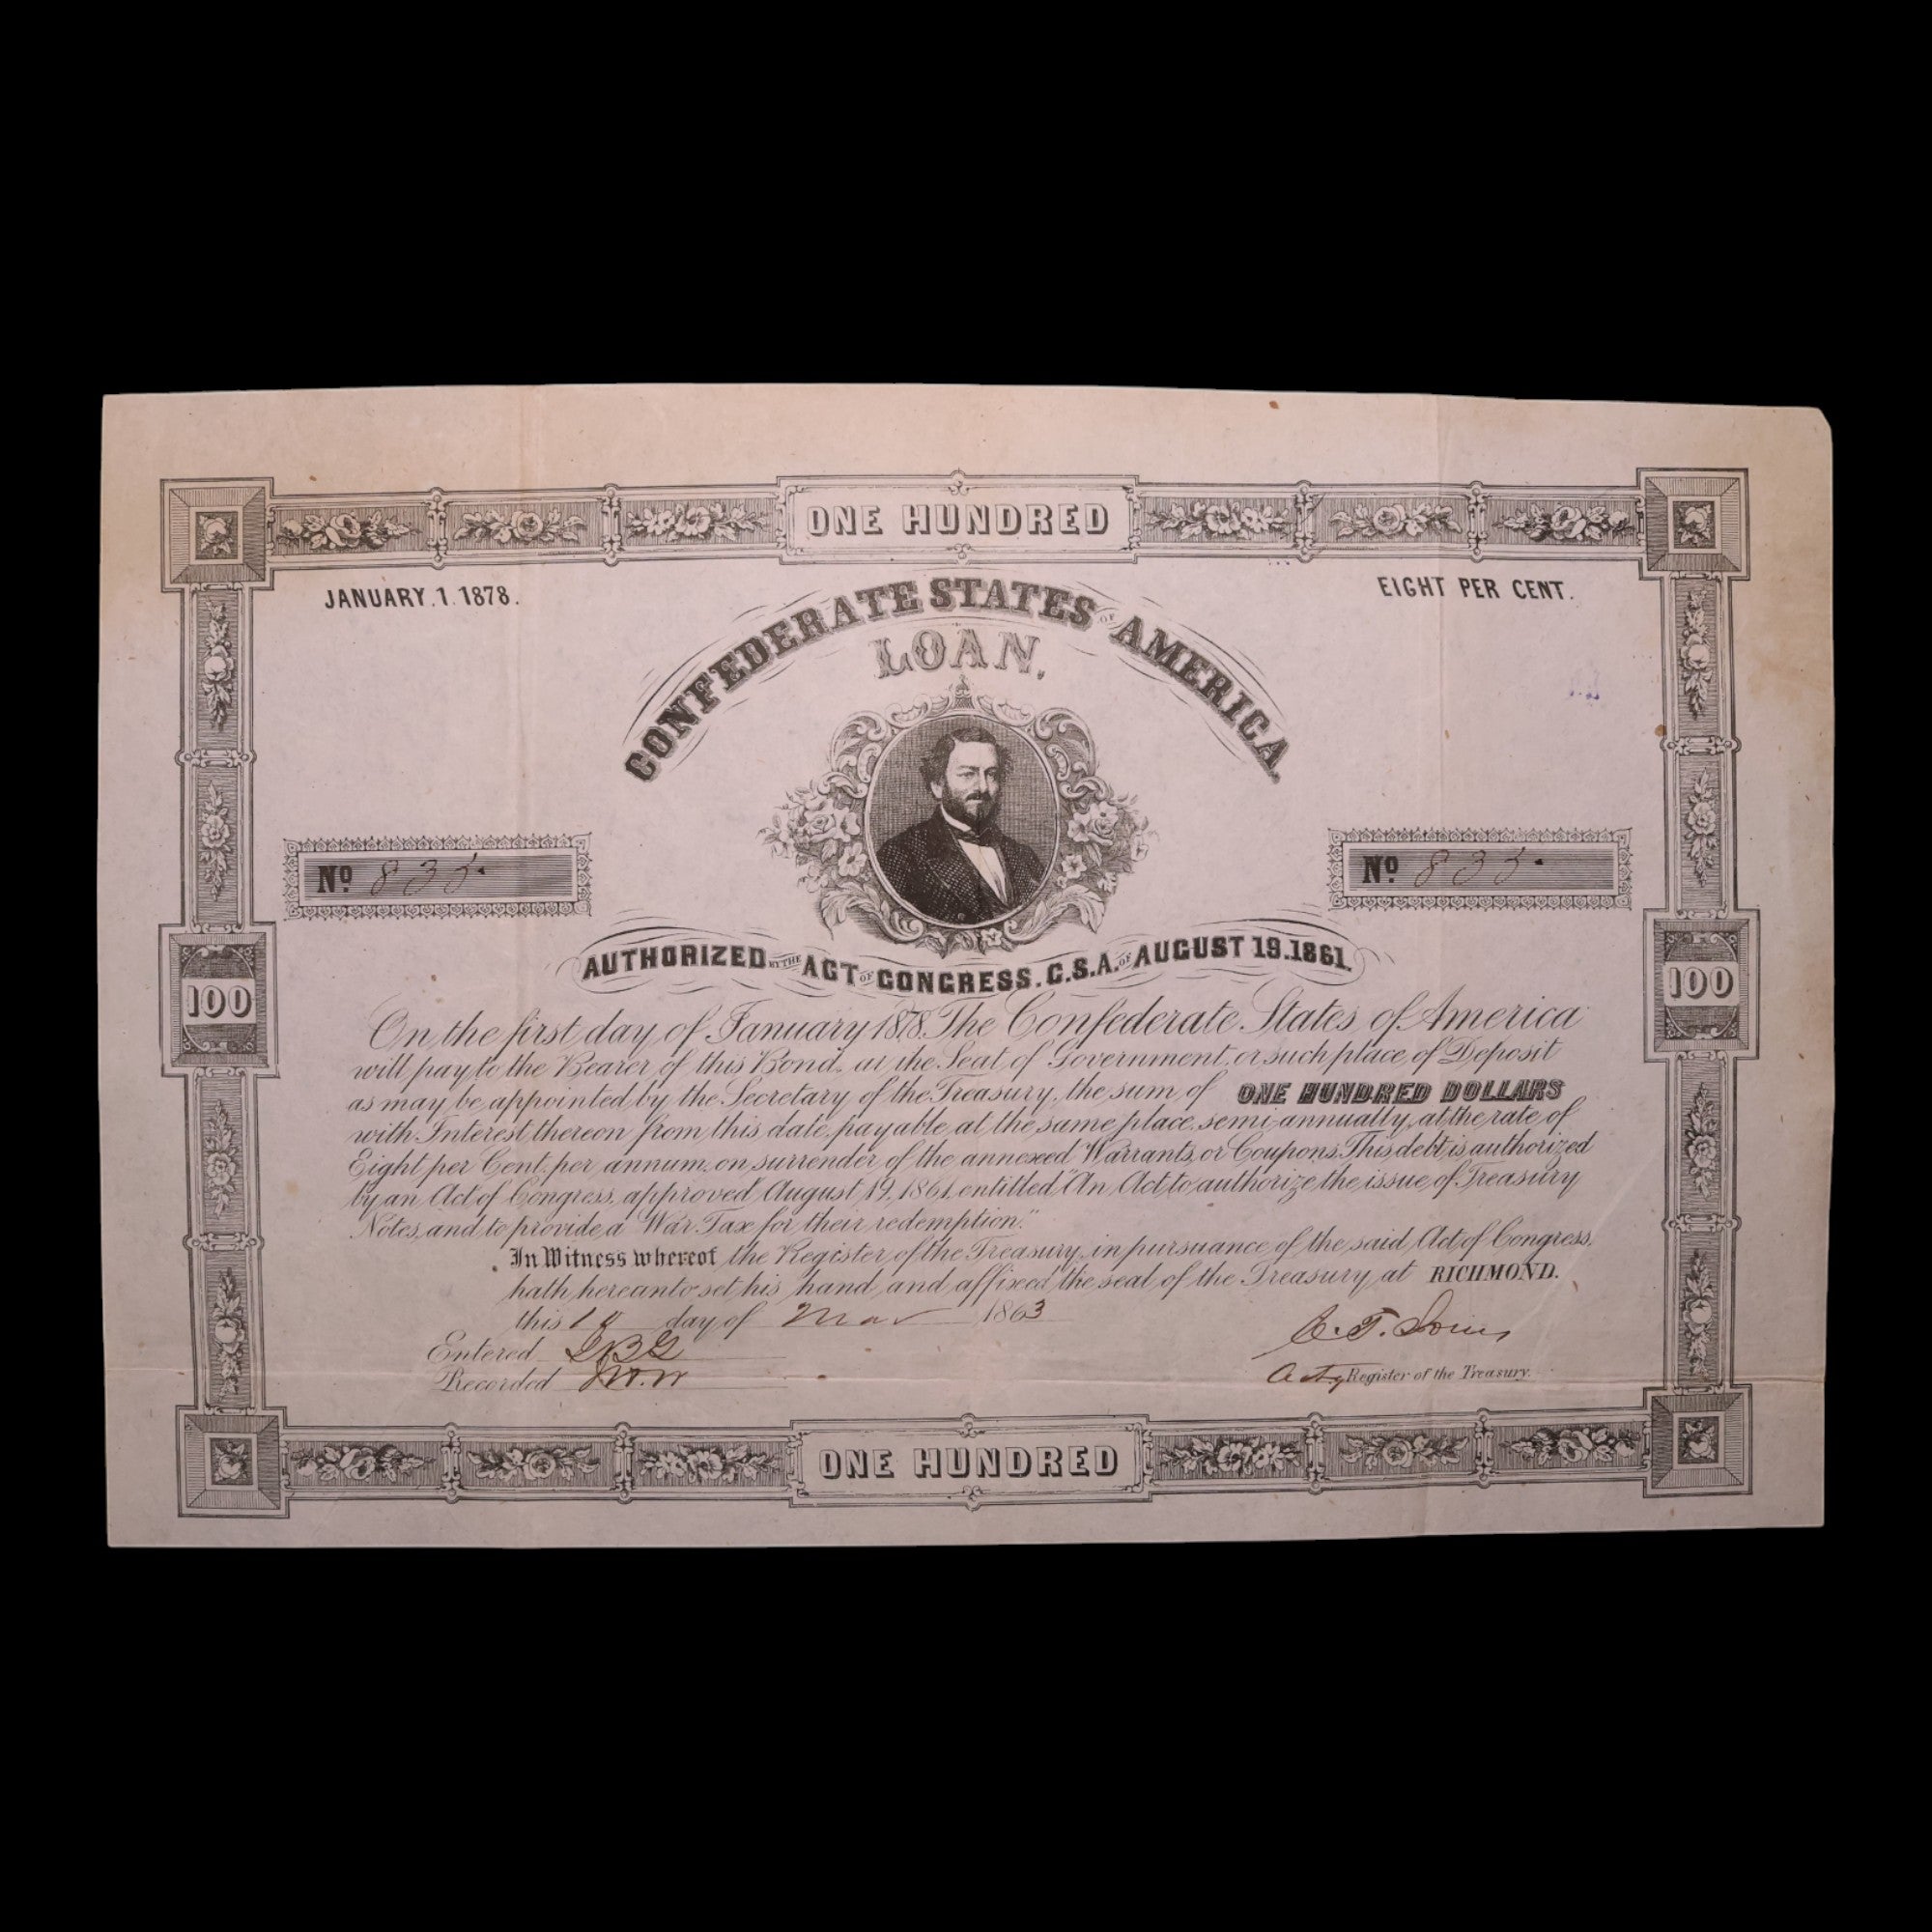 ONE HUNDRED
JANUARY.1.1878.
EIGHT PER CENT.
CONFEDERATE STATES OF AMERICA.
LOAN,
Nº 835.
Nº 835.
AUTHORIZED BY THE ACT OF CONGRESS. C.S.A. OF AUGUST 19.1861.
100
100
On the first day of January 1878. The Confederate States of America
will pay to the Bearer of this Bond, at the Seat of Government, or such place of Deposit
as may be appointed by the Secretary of the Treasury, the sum of ONE HUNDRED DOLLARS
with Interest thereon from this date, payable at the same place, semi-annually, at the rate of
Eight per Cent. per annum, on surrender of the annexed Warrants, or Coupons. This debt is authorized
by an Act of Congress, approved August 19, 1861, entitled "An Act to authorize the issue of Treasury
Notes, and to provide a War Tax for their redemption."
In Witness whereof the Register of the Treasury, in pursuance of the said Act of Congress,
hath hereunto set his hand and affixed the seal of the Treasury, at RICHMOND.
this day of Mar 1863
Entered
Recorded
C. T.
Actg Register of the Treasury.
ONE HUNDRED